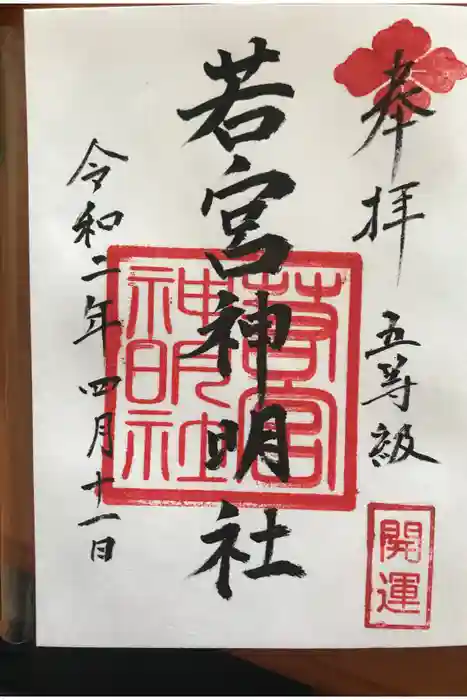 奉拝
五等級
開運
若宮神明社
若宮
神明社
令和二年四月十一日